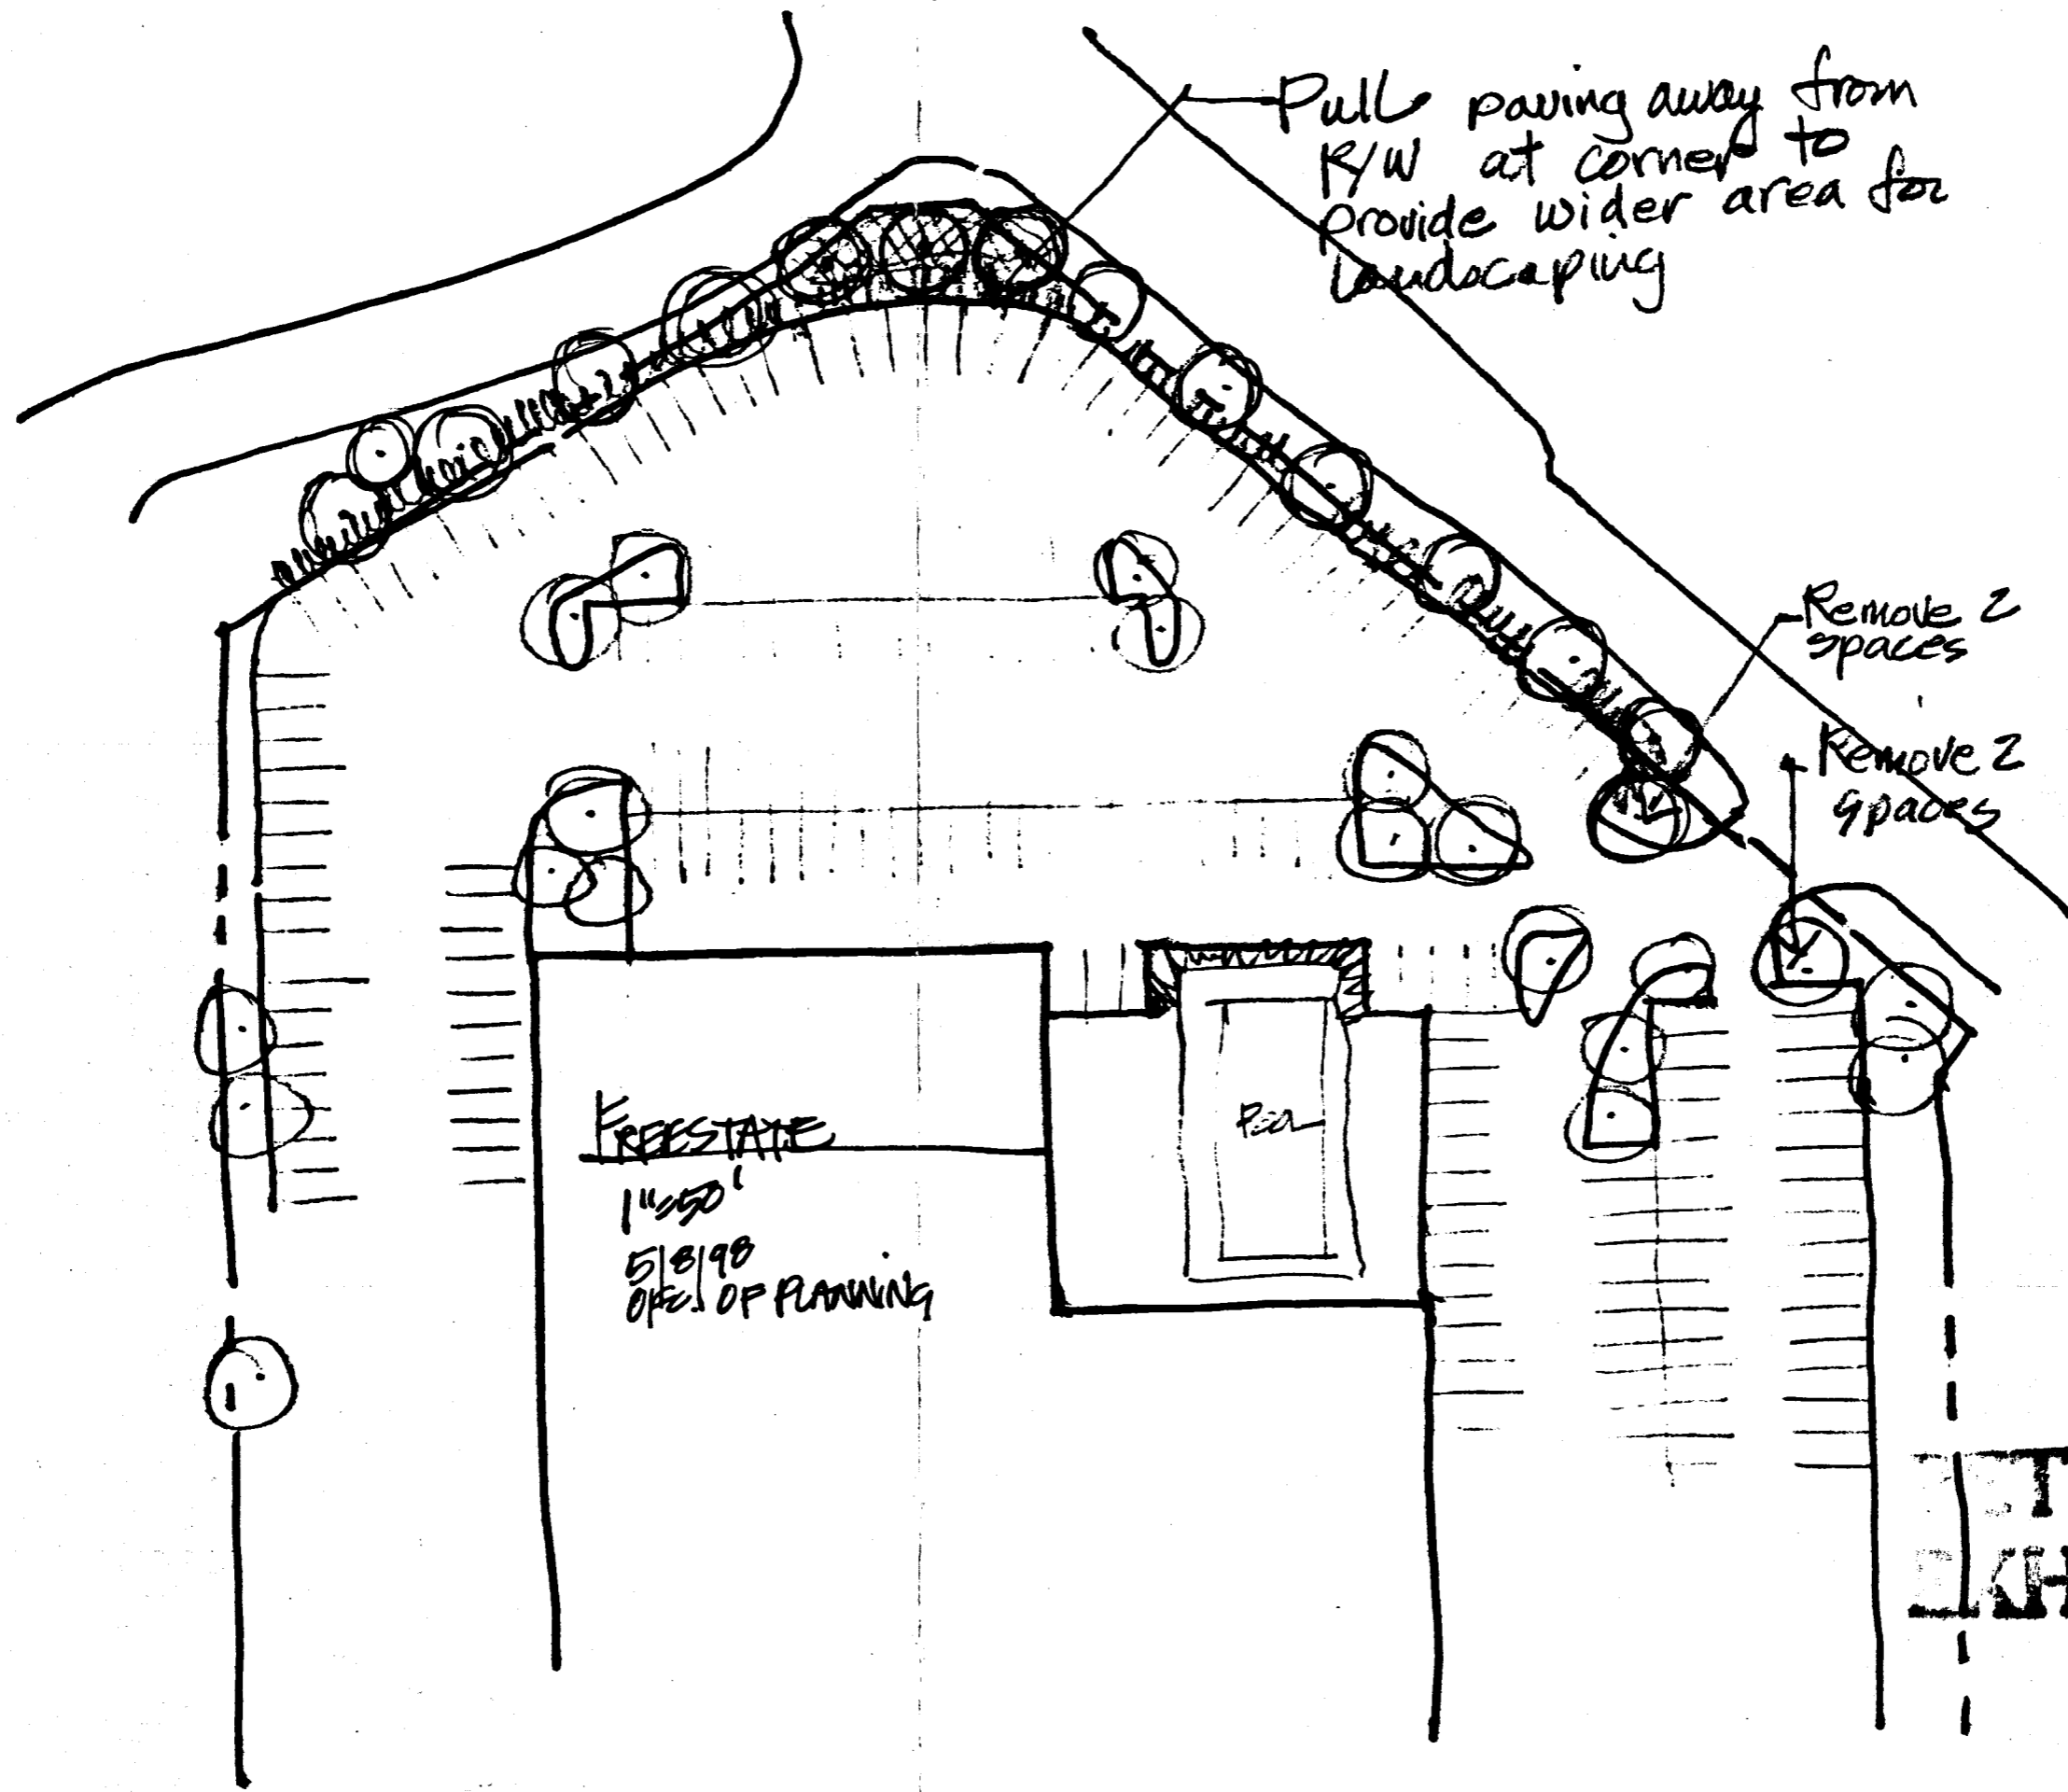 Pull paving away from
R/W at corner to
provide wider area for
landscaping
Remove 2
spaces
Remove 2
spaces
FREESTATE
1"=50'
5/8/98
OFC. OF PLANNING